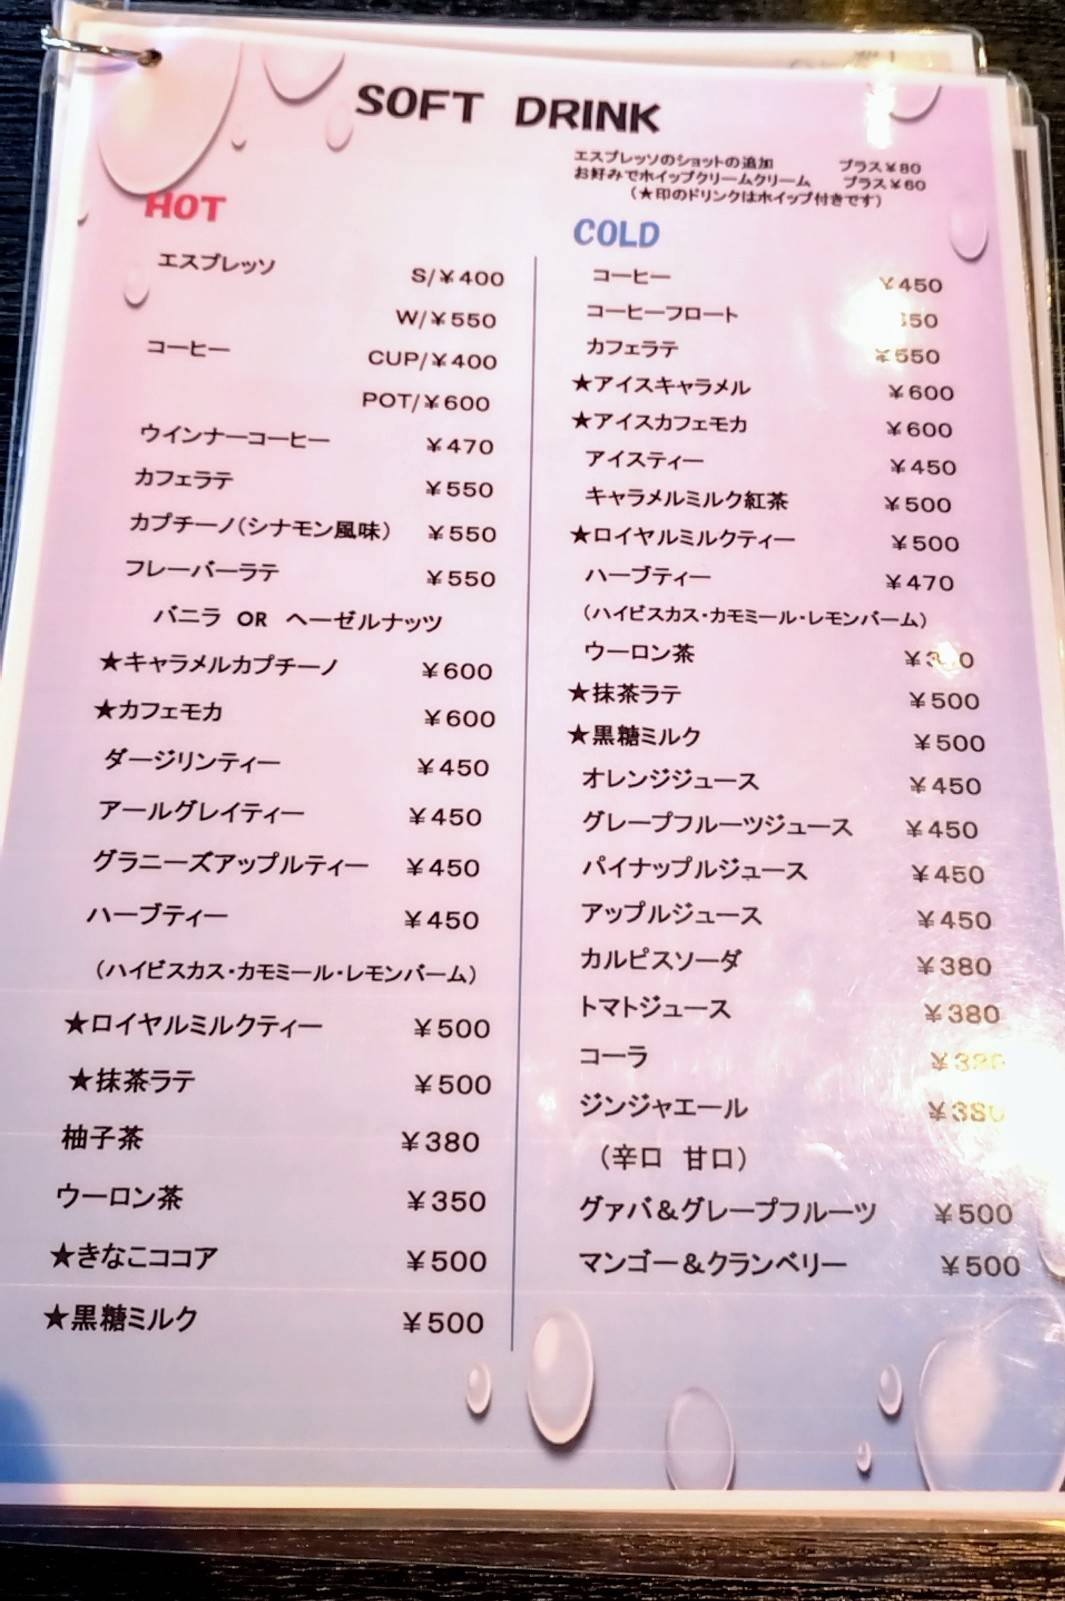 SOFT DRINK
エスプレッソのショットの追加 プラス¥80
お好みでホイップクリームクリーム プラス¥60
(★印のドリンクはホイップ付きです)
HOT
エスプレッソ S/¥400
W/¥550
コーヒー CUP/¥400
POT/¥600
ウインナーコーヒー ¥470
カフェラテ ¥550
カプチーノ(シナモン風味) ¥550
フレーバーラテ ¥550
バニラ OR ヘーゼルナッツ
★キャラメルカプチーノ ¥600
★カフェモカ ¥600
ダージリンティー ¥450
アールグレイティー ¥450
グラニーズアップルティー ¥450
ハーブティー ¥450
(ハイビスカス・カモミール・レモンバーム)
★ロイヤルミルクティー ¥500
★抹茶ラテ ¥500
柚子茶 ¥380
ウーロン茶 ¥350
★きなこココア ¥500
★黒糖ミルク ¥500
COLD
コーヒー ¥450
コーヒーフロート
カフェラテ ¥550
★アイスキャラメル ¥600
★アイスカフェモカ ¥600
アイスティー ¥450
キャラメルミルク紅茶 ¥500
★ロイヤルミルクティー ¥500
ハーブティー ¥470
(ハイビスカス・カモミール・レモンバーム)
ウーロン茶
★抹茶ラテ ¥500
★黒糖ミルク ¥500
オレンジジュース ¥450
グレープフルーツジュース ¥450
パイナップルジュース ¥450
アップルジュース ¥450
カルピスソーダ ¥380
トマトジュース ¥380
コーラ ¥380
ジンジャエール ¥380
(辛口 甘口)
グァバ&グレープフルーツ ¥500
マンゴー&クランベリー ¥500